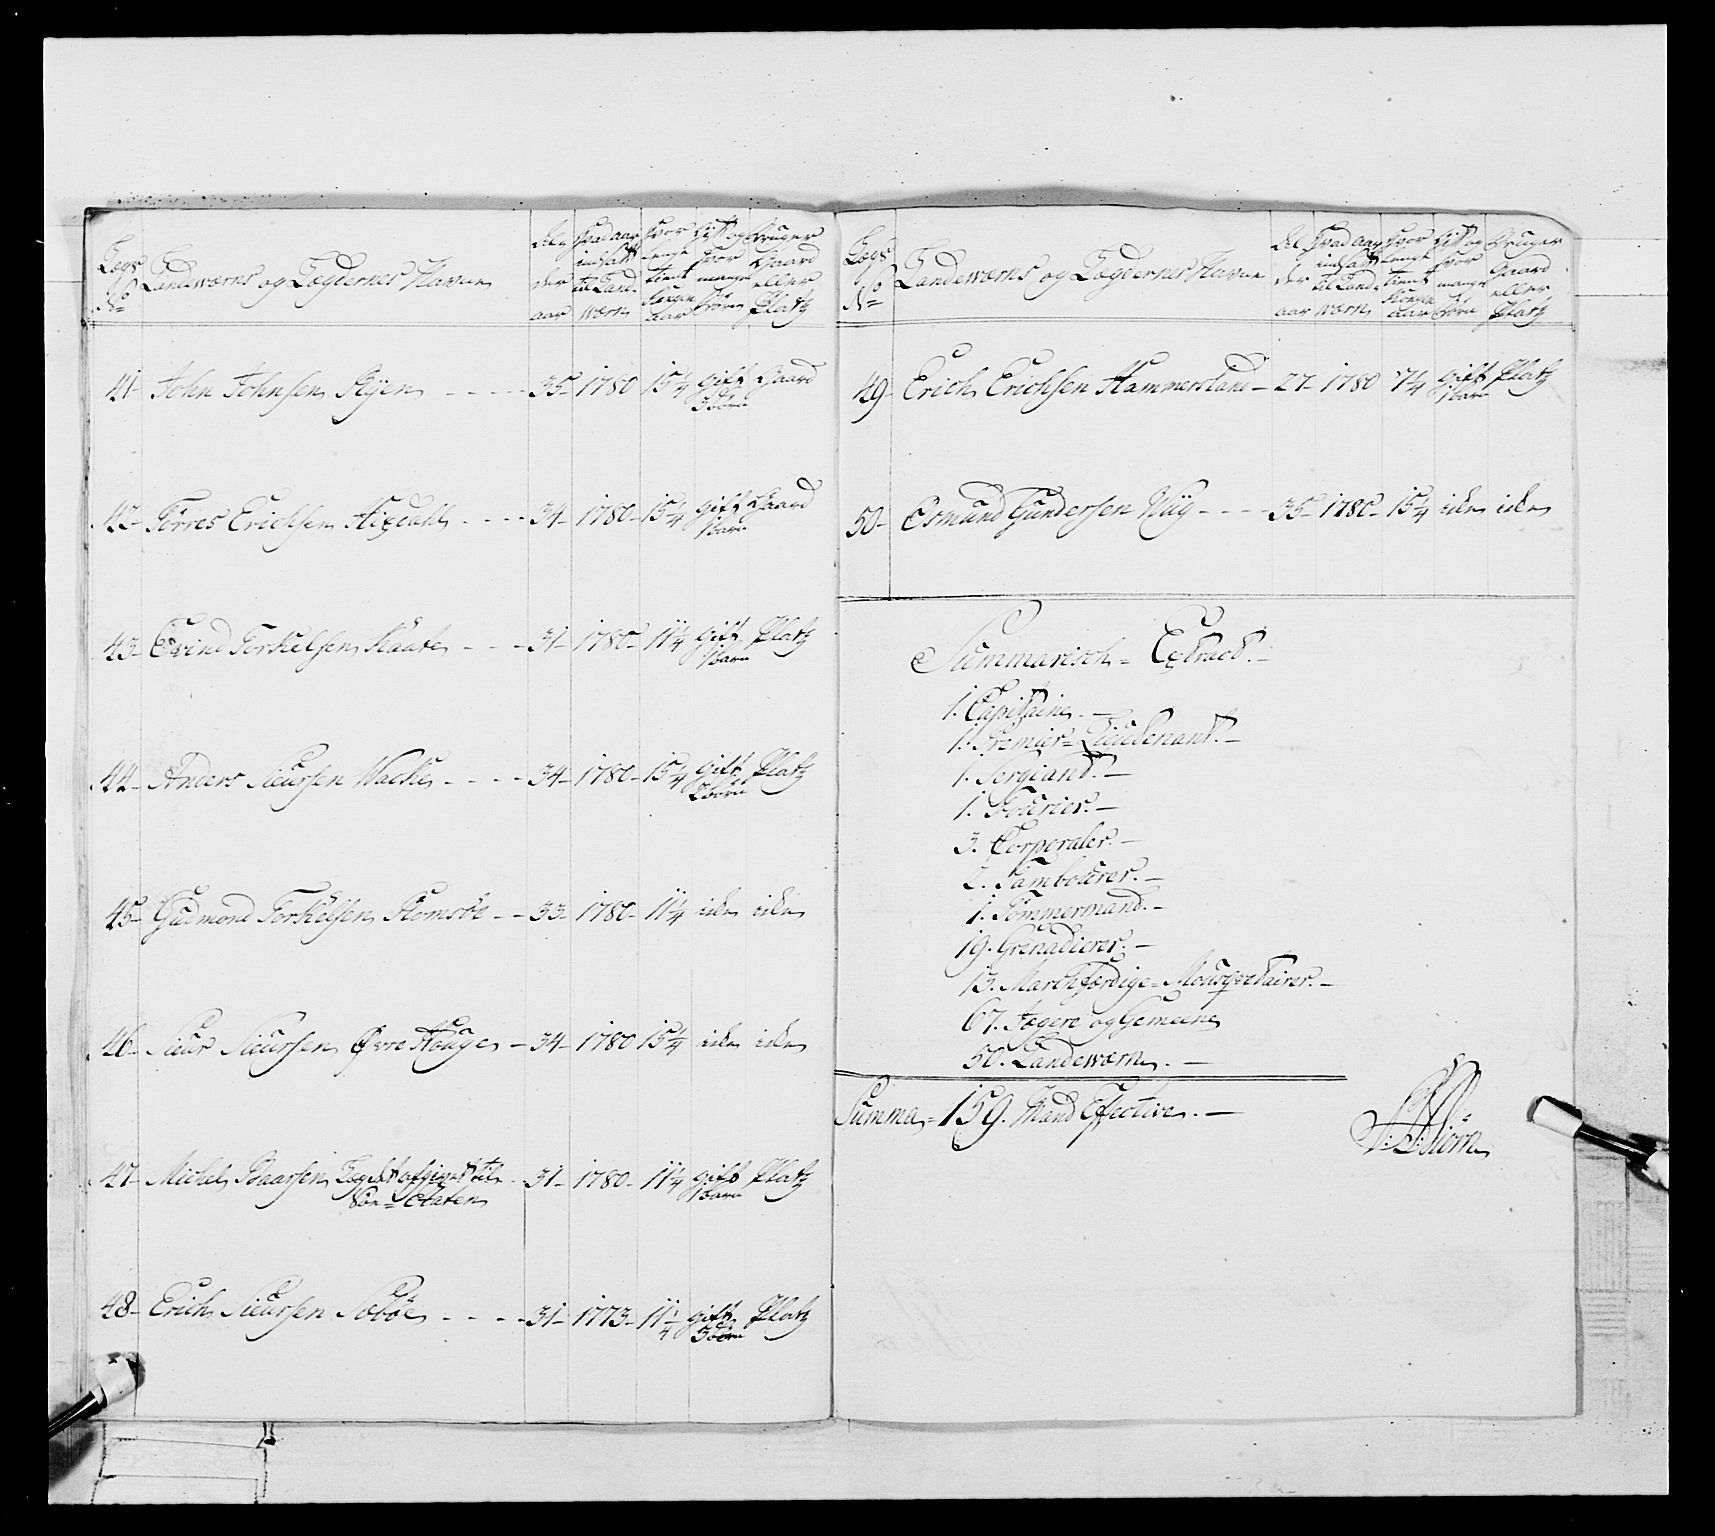 Lægs No
Landeværns og Lægdernes Navne
Alder aar
Hvad aar indsatt til Landværn
Hvor længe tient Kongen aar
Gift og hvor mange Børn
Bruger Gaard eller Platz
41- John Johnsen Ryen - - - - - 35- 1780 15 1/4 gift 3 børn Gaard
42- Torres Erichsen Aixdahl - - - - 34- 1780- 15 1/4 gift 1 barn Gaard
43- Evind Torkelsen Kaate - - - 31- 1780- 11 1/4 gift 1 barn Platz
44- Anders Siursen Wacke - - - - 34- 1780- 15 1/4 gift 2 børn Platz
45- Gudmond Torkelsen Romsöe - - 33- 1780- 11 1/4 iden iden
46- Siur Siursen Øvre Houge - 34- 1780 15 1/4 iden iden
47- Michel Baarsen Lægdet afgivet til Söe-Etaten - 31- 1780- 11 1/4 gift 1 barn Platz
48- Erich Siursen Sæböe - - - - 31- 1773- 11 1/4 gift 3 børn Platz
Lægs No
Landeværns og Lægdernes Navne
Alder aar
Hvad aar indsatt til Landværn
Hvor længe tient Kongen aar
Gift og hvor mange Børn
Bruger Gaard eller Platz
49- Erich Erichsen Hammersland - 27- 1780 7 1/4 gift 1 barn Platz
50- Osmund Gundersen Wiig - - - - 35- 1780- 15 1/4 iden iden
Summarisch = Extract. -
1. Capitaine. -
1. Premier=Lieutenant. -
1. Sergiant. -
1. Fourier. -
3. Corporaler. -
2. Tambourer. -
1. Tømmermand. -
19. Grenadierer. -
13. Marchfærdige=Mousqvetairer. -
67. Jægere og Gemeene
50. Landeværn. -
Summa = 159. Mand Effective. -